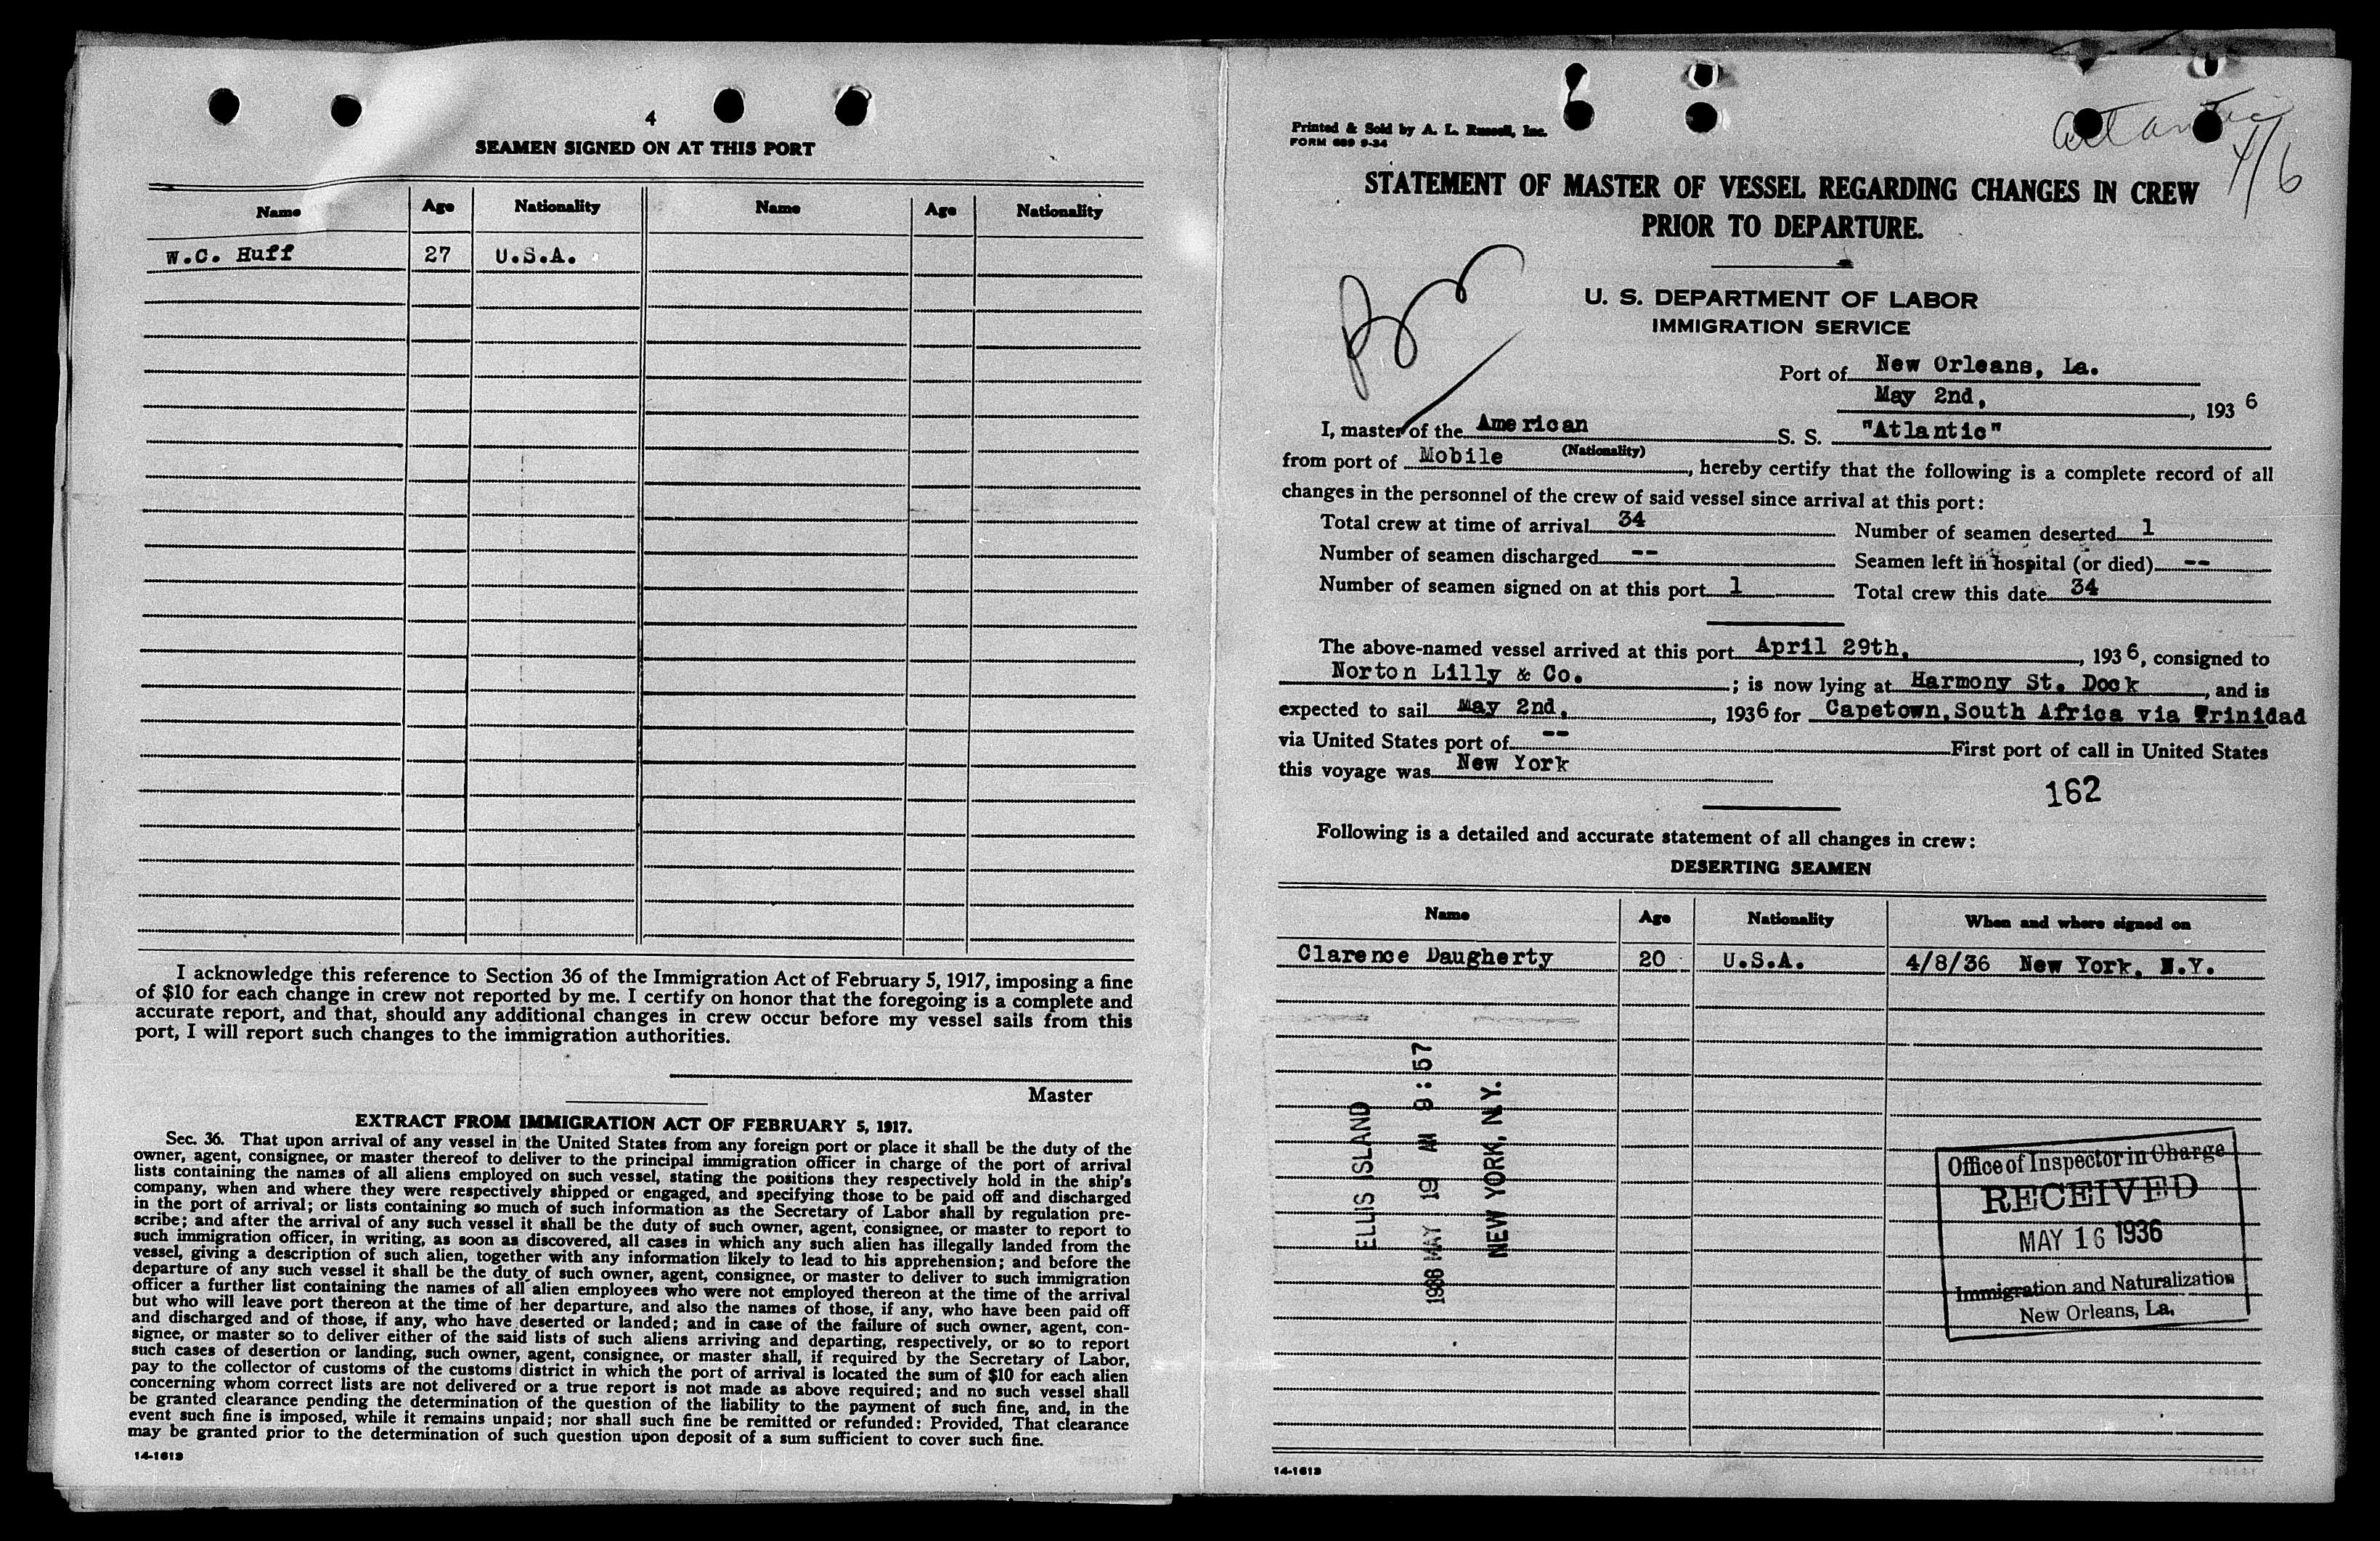 4
SEAMEN SIGNED ON AT THIS PORT
Name Age Nationality Name Age Nationality
W.C. Huff 27 U.S.A.
I acknowledge this reference to Section 36 of the Immigration Act of February 5, 1917, imposing a fine
of $10 for each change in crew not reported by me. I certify on honor that the foregoing is a complete and
accurate report, and that, should any additional changes in crew occur before my vessel sails from this
port, I will report such changes to the immigration authorities.
Master
EXTRACT FROM IMMIGRATION ACT OF FEBRUARY 5, 1917.
Sec. 36. That upon arrival of any vessel in the United States from any foreign port or place it shall be the duty of the
owner, agent, consignee, or master thereof to deliver to the principal immigration officer in charge of the port of arrival
lists containing the names of all aliens employed on such vessel, stating the positions they respectively hold in the ship's
company, when and where they were respectively shipped or engaged, and specifying those to be paid off and discharged
in the port of arrival; or lists containing so much of such information as the Secretary of Labor shall by regulation pre-
scribe; and after the arrival of any such vessel it shall be the duty of such owner, agent, consignee, or master to report to
such immigration officer, in writing, as soon as discovered, all cases in which any such alien has illegally landed from the
vessel, giving a description of such alien, together with any information likely to lead to his apprehension; and before the
departure of any such vessel it shall be the duty of such owner, agent, consignee, or master to deliver to such immigration
officer a further list containing the names of all alien employees who were not employed thereon at the time of the arrival
but who will leave port thereon at the time of her departure, and also the names of those, if any, who have been paid off
and discharged and of those, if any, who have deserted or landed; and in case of the failure of such owner, agent, con-
signee, or master so to deliver either of the said lists of such aliens arriving and departing, respectively, or so to report
such cases of desertion or landing, such owner, agent, consignee, or master shall, if required by the Secretary of Labor,
pay to the collector of customs of the customs district in which the port of arrival is located the sum of $10 for each alien
concerning whom correct lists are not delivered or a true report is not made as above required; and no such vessel shall
be granted clearance pending the determination of the question of the liability to the payment of such fine, and, in the
event such fine is imposed, while it remains unpaid; nor shall such fine be remitted or refunded: Provided, That clearance
may be granted prior to the determination of such question upon deposit of a sum sufficient to cover such fine.
14-1613
Printed & Sold by A. L. Russell, Inc.
FORM 689 9-34
Atlantic
4/6
STATEMENT OF MASTER OF VESSEL REGARDING CHANGES IN CREW
PRIOR TO DEPARTURE.
U. S. DEPARTMENT OF LABOR
IMMIGRATION SERVICE
Port of New Orleans, La.
May 2nd, , 1936
I, master of the American S. S. "Atlantic"
(Nationality)
from port of Mobile , hereby certify that the following is a complete record of all
changes in the personnel of the crew of said vessel since arrival at this port:
Total crew at time of arrival 34 Number of seamen deserted 1
Number of seamen discharged -- Seamen left in hospital (or died) --
Number of seamen signed on at this port 1 Total crew this date 34
The above-named vessel arrived at this port April 29th, , 1936, consigned to
Norton Lilly & Co. ; is now lying at Harmony St. Dock , and is
expected to sail May 2nd, , 1936 for Capetown, South Africa via Trinidad
via United States port of -- First port of call in United States
this voyage was New York
162
Following is a detailed and accurate statement of all changes in crew:
DESERTING SEAMEN
Name Age Nationality When and where signed on
Clarence Daugherty 20 U.S.A. 4/8/36 New York, N.Y.
ELLIS ISLAND
1936 MAY 19 AM 9:57
NEW YORK, N.Y.
Office of Inspector in Charge
RECEIVED
MAY 16 1936
Immigration and Naturalization
New Orleans, La.
14-1613